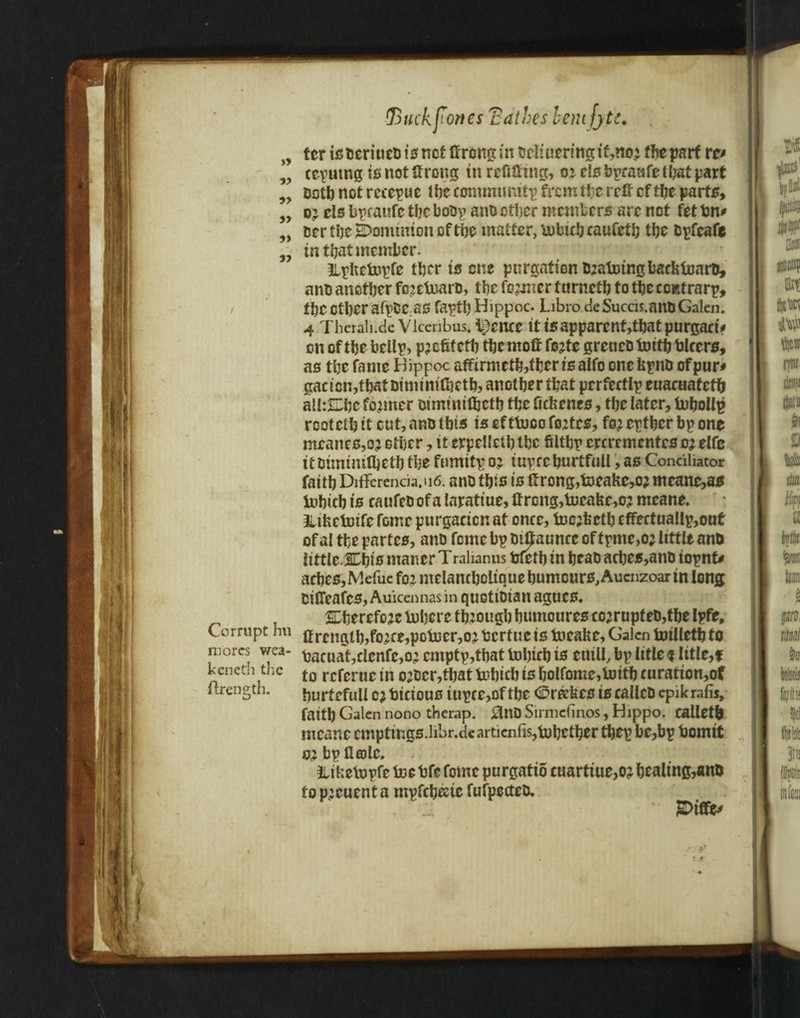 Buckstones Bathes benefyte.
„ ter is deriued is not strong in deliuering it, noz the part re=
„ ceyuing is not strong in resisting, oz els bycause that part
„ doth not receyue the community from the rest of the parts,
„ oz els bycause the body and other members are not set vn=
„ der the Dominion of the matter, which causeth the dysease
„ in that member.
Lykewyse ther is one purgation drawing backward,
and another foreward, the former turneth to the contrary,
the other asyde as sayth Hippoc. Libro de Succis. and Galen.
4. Therah.de Vlceribus. Hence it is apparent, that purgaci=
on of the belly, profiteth the most sorte greued with vlcers,
as the same Hippoc affirmeth, ther is also one kynd of pur=
gacion, that diminisheth, another that perfectly euacuateth
all: The former diminisheth the sickenes, the later, wholly
rooteth it out, and this is of twoo sortes, for eyther by one
meanes, or other, it expelleth the filthy excrementes or else
it diminisheth the fumity or iuyce hurtfull, as Conciliator
saith Differencia. 116. and this is strong, weake, or meane, as
which is caused of a laxatiue, strong, weake, or meane.
Likewise some purgacion at once, worketh effectually, out
of al the partes, and some by distaunce of tyme, or little and
little. This maner Tralianus vseth in head aches, and ioynt=
aches, Mesue for melancholique humours, Auenzoar in long
disseases, Auicennas in quotidian agues.
Therefore where through humoures corrupted, the lyfe,
strength, force, power, or vertue is weake, Galen willeth to
vacuat, clense, or empty, that which is euill, by litle & litle, &
to reserue in order, that which is holsome, with curation, of
hurtefull or vicious iuyce, of the Greekes is called epikrasis,
saith Galen nono therap. And Sirmesinos, Hippo. calleth
meane emptings. libr.de articnsis, whether they be, by vomit
or by stoole.
Likewyse we vse some purgatiō curatiue, or healing, and
to preuent a myscheeie suspected.
Disse=
Corrupt hu
mores wea-
keneth the
strength.